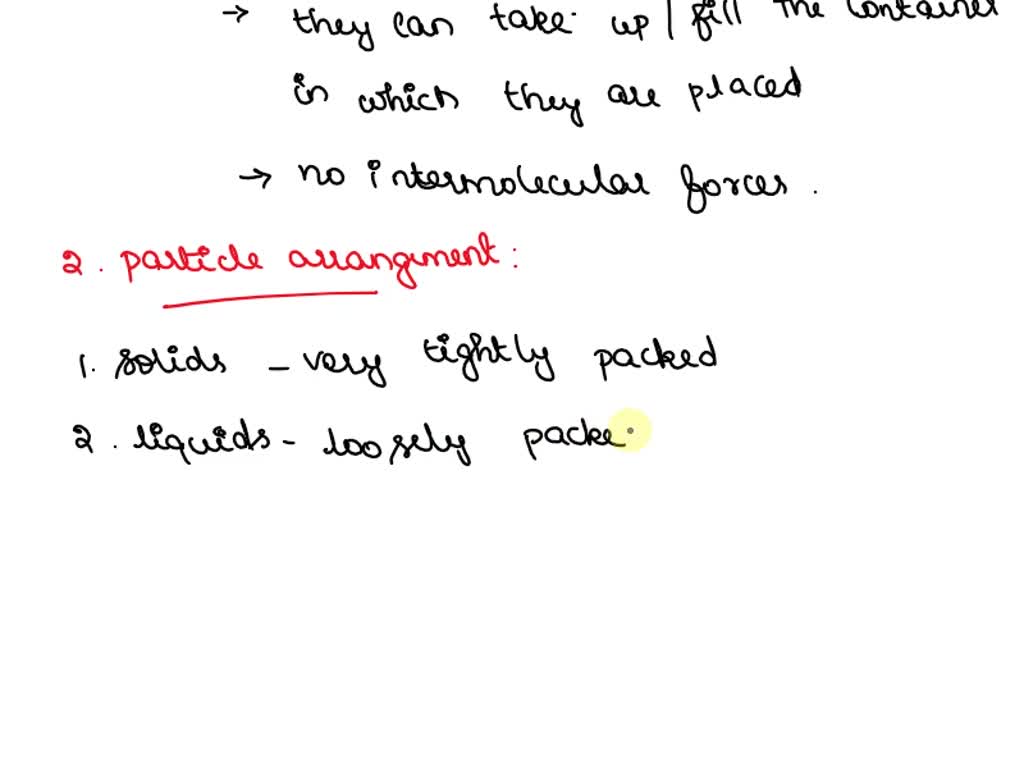 → they can take up / fill the container
in which they are placed
→ no intermolecular forces.
2. particle arrangment:
1. solids - very tightly packed
2. liquids - loosely packe